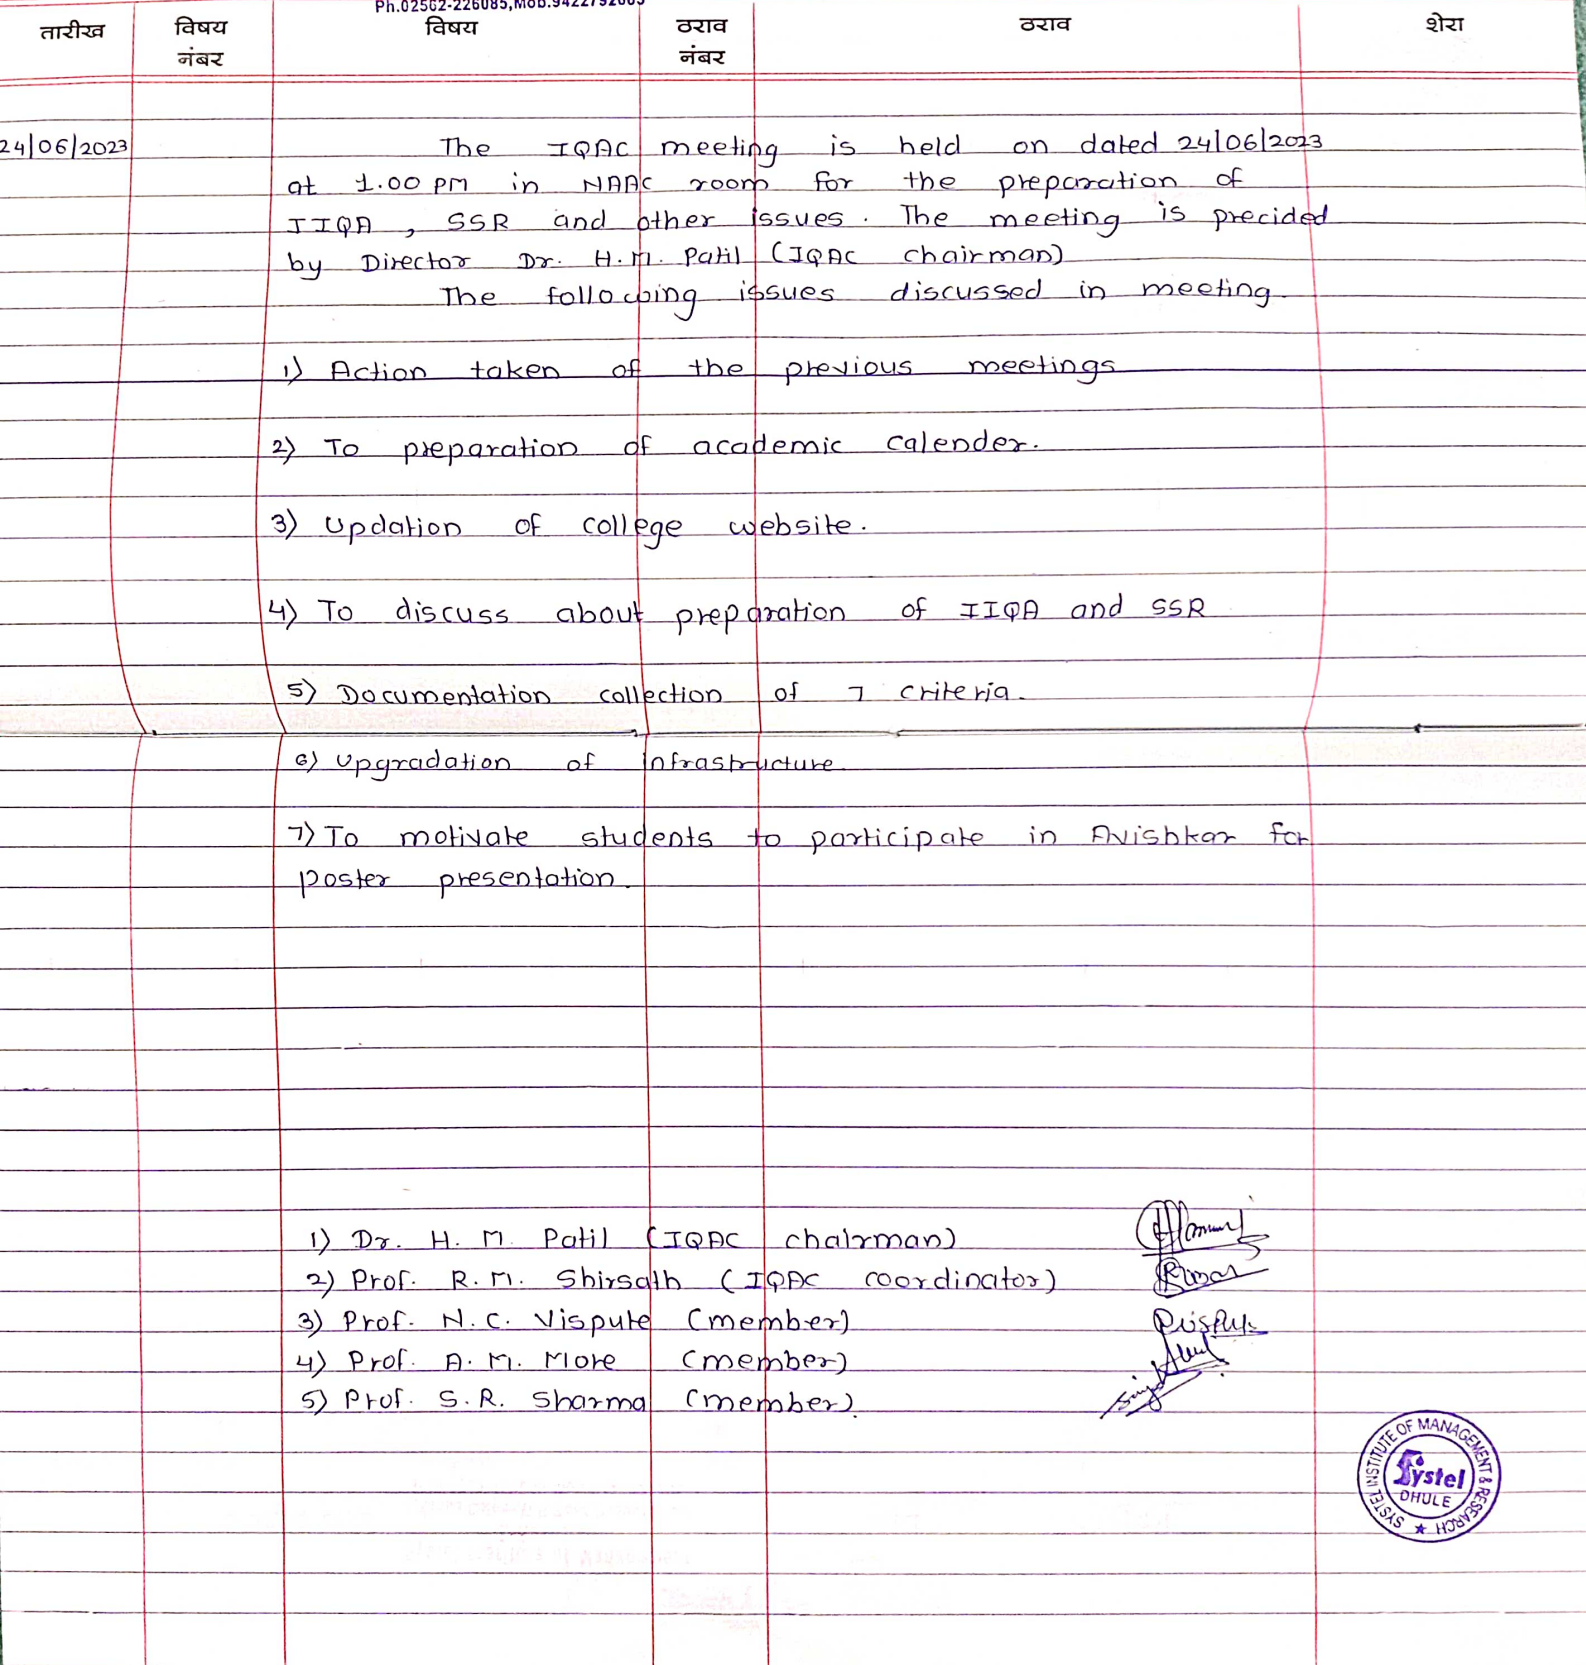 Ph.02562-226085,Mob.9422792605
तारीख विषय नंबर विषय ठराव नंबर ठराव शेरा
24/06/2023 The IQAC meeting is held on dated 24/06/2023
at 1.00 PM in NAAC room for the preparation of
IIQA, SSR and other issues. The meeting is precided
by Director Dr. H.M. Patil (IQAC chairman)
The following issues discussed in meeting.
1) Action taken of the previous meetings
2) To preparation of academic calender.
3) Updation of college website.
4) To discuss about preparation of IIQA and SSR
5) Documentation collection of 7 criteria.
6) Upgradation of infrastructure
7) To motivate students to participate in Avishkar for
poster presentation.
1) Dr. H. M. Patil (IQAC chairman)
2) Prof. R.M. Shirsath (IQAC coordinator)
3) Prof. N.C. Vispute (member)
4) Prof. A.M. More (member)
5) Prof. S.R. Sharma (member).
SYSTEL INSTITUTE OF MANAGEMENT & RESEARCH
Systel
DHULE